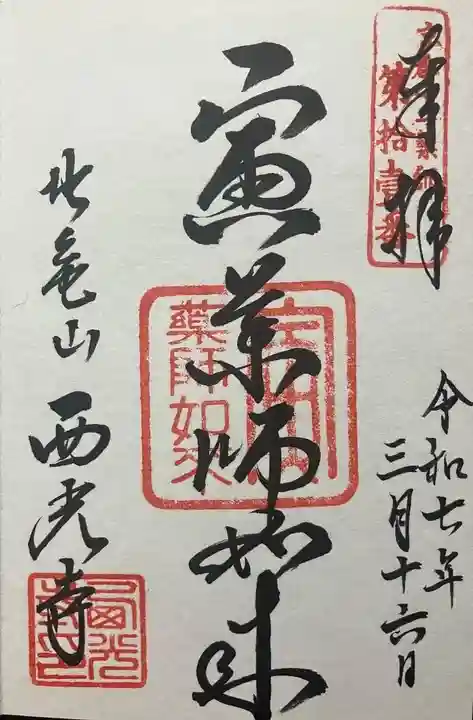 奉拝
第拾壹番
令和七年
三月十六日
寅薬師如来
薬師如来
北亀山 西光寺
西光寺印